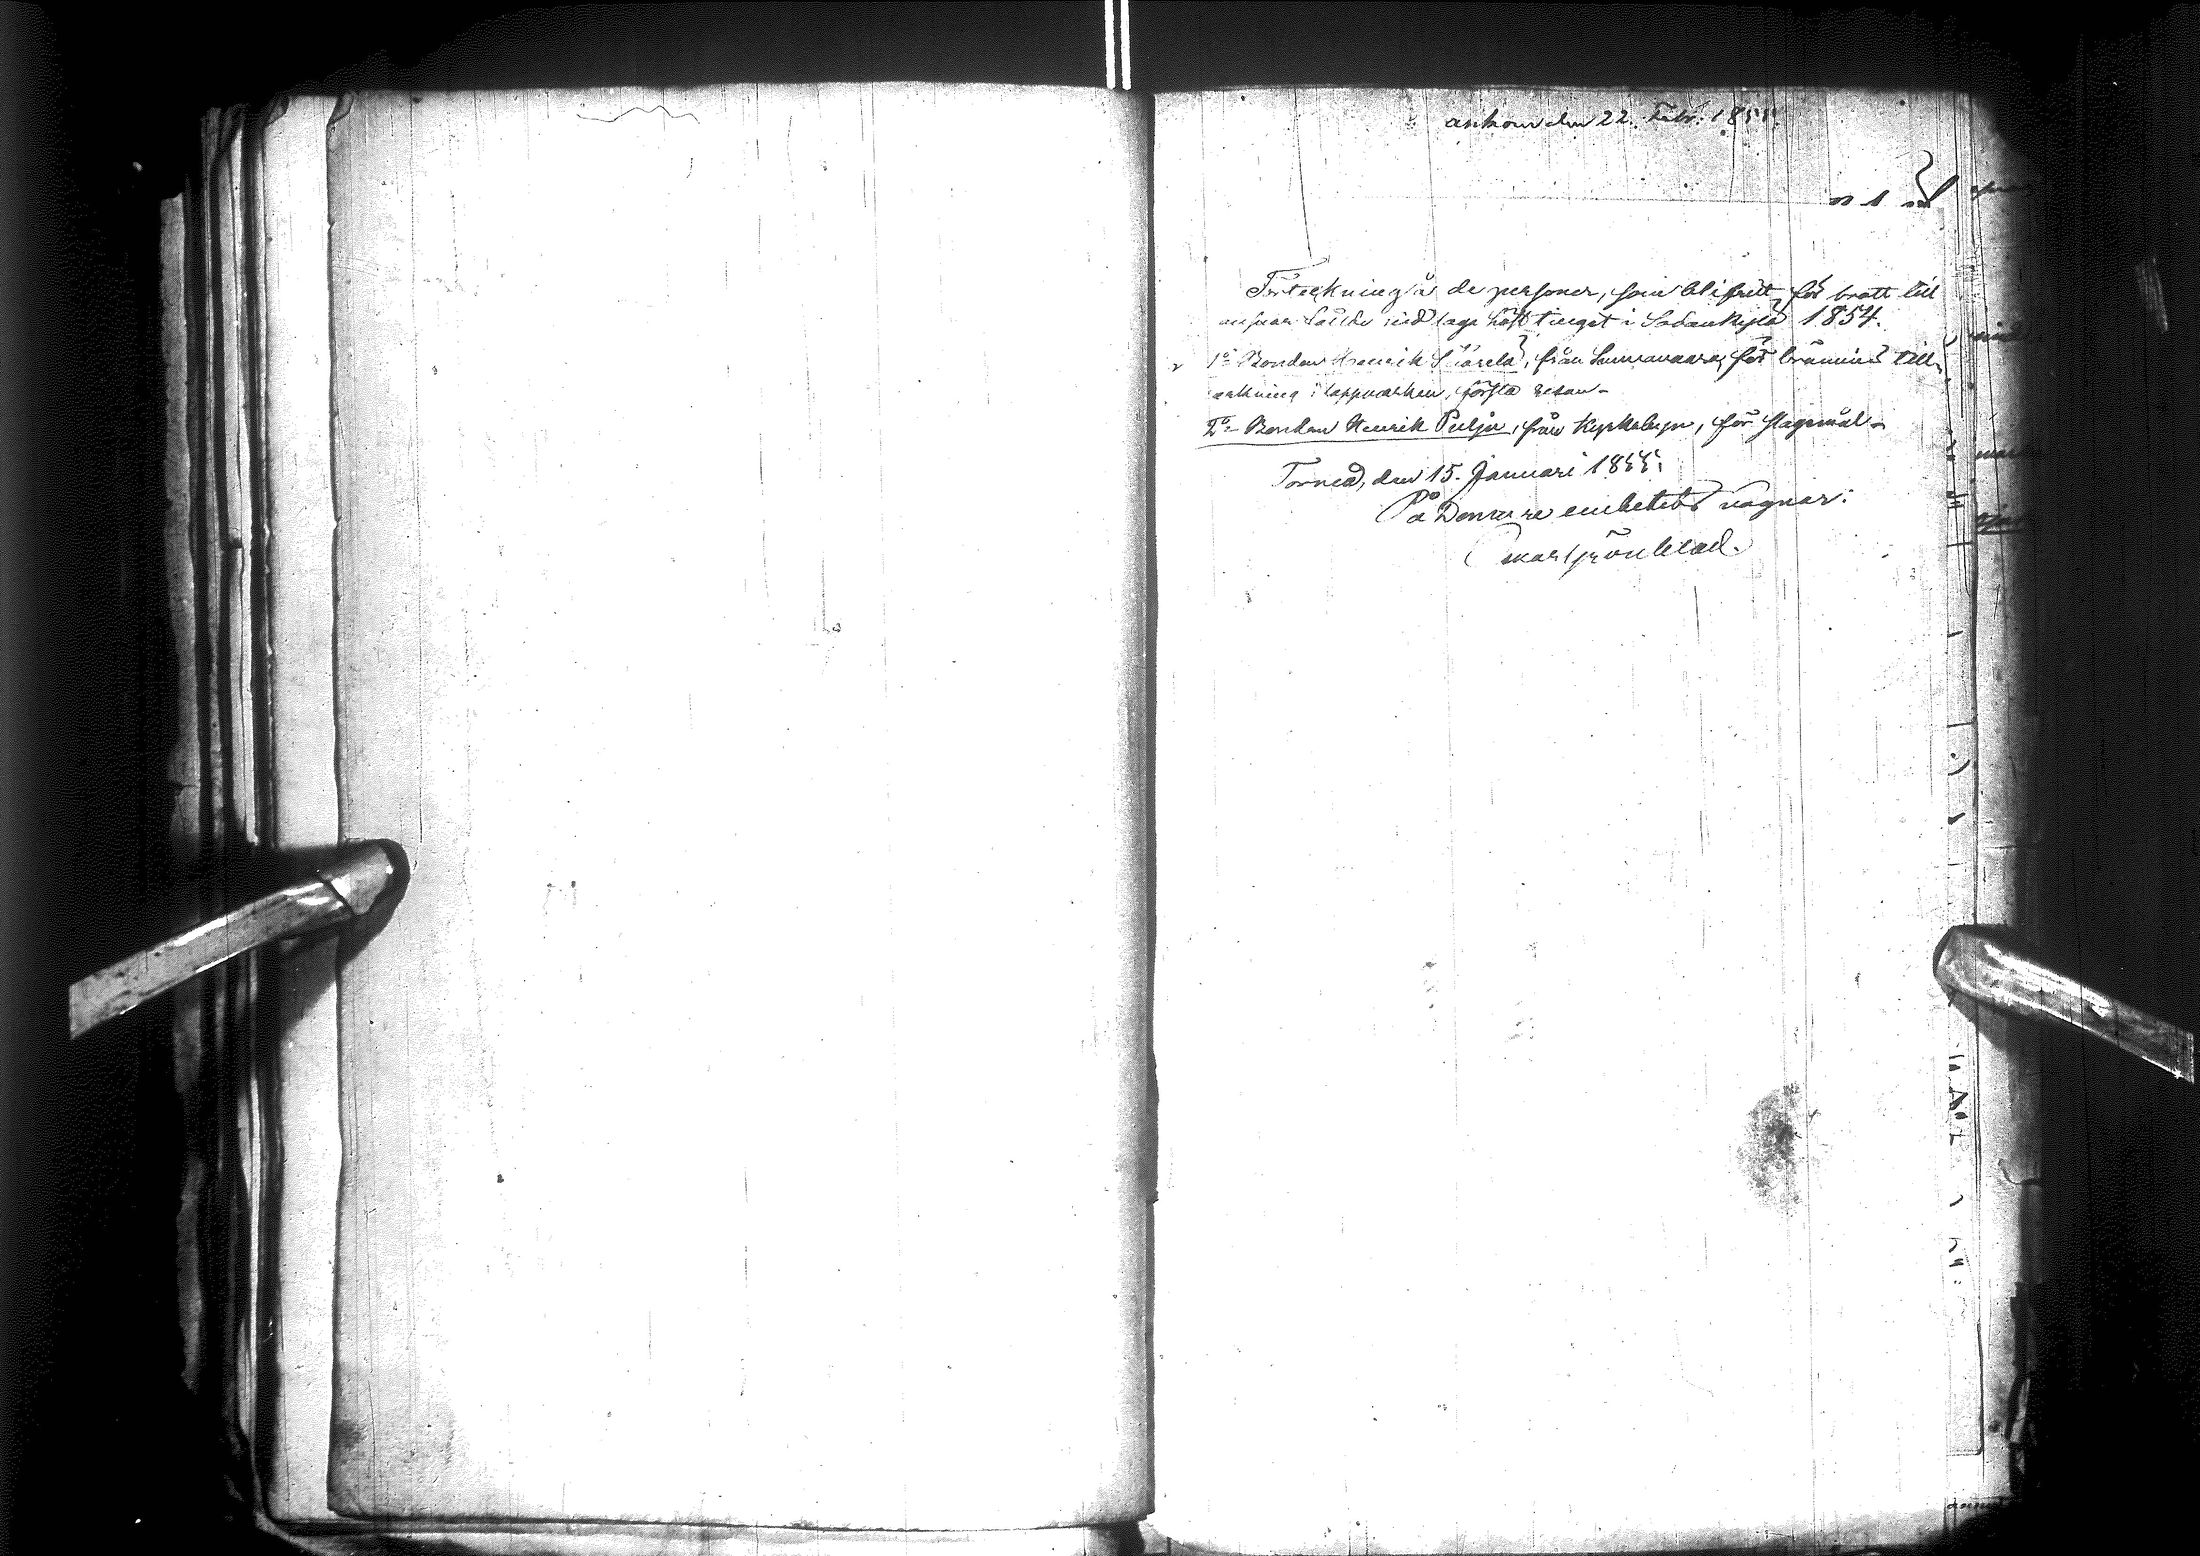 ankom den 22. Febr. 1855.
Förteckning å de personer, som blifvit för brott till
ansvar fällde vid laga hösttinget i Sodankylä 1854.
1o Bonden Henrik från för bränvins till-
verkning i lappmarken, första resan.
2o Bonden Henrik Pulju, från Kyrkobyn, för slagsmål.
Torneå, den 15. Januari 1855.
På Domare embetets vägnar:
Oskar Grönblad.